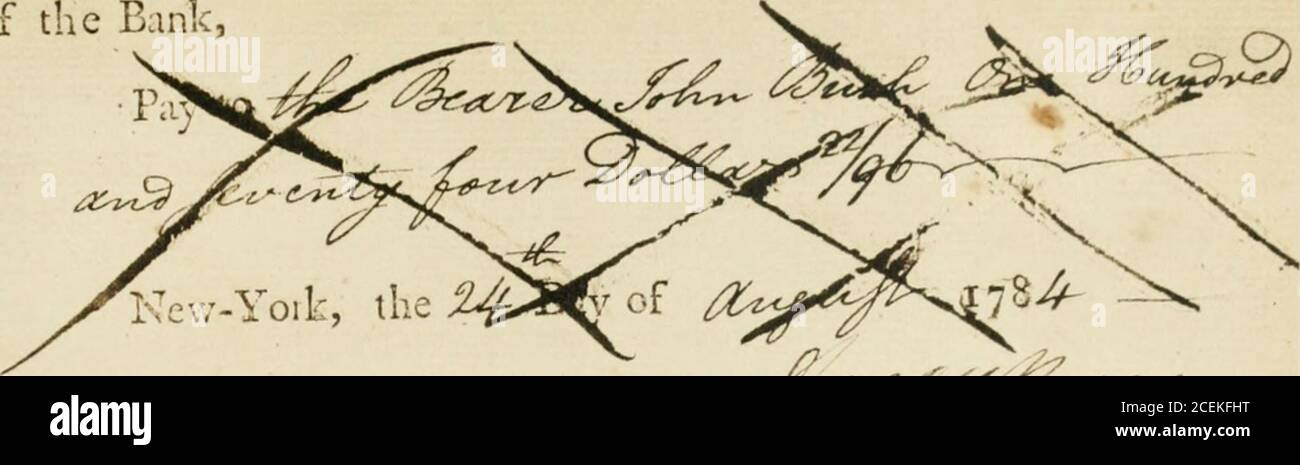 f the Bank,
Pay to the Bearer John Bush One Hundred
and seventy four Dollars 22/96
New-York, the 24th Day of August 1784
alamy
Image ID: 2CEKFHT
www.alamy.com